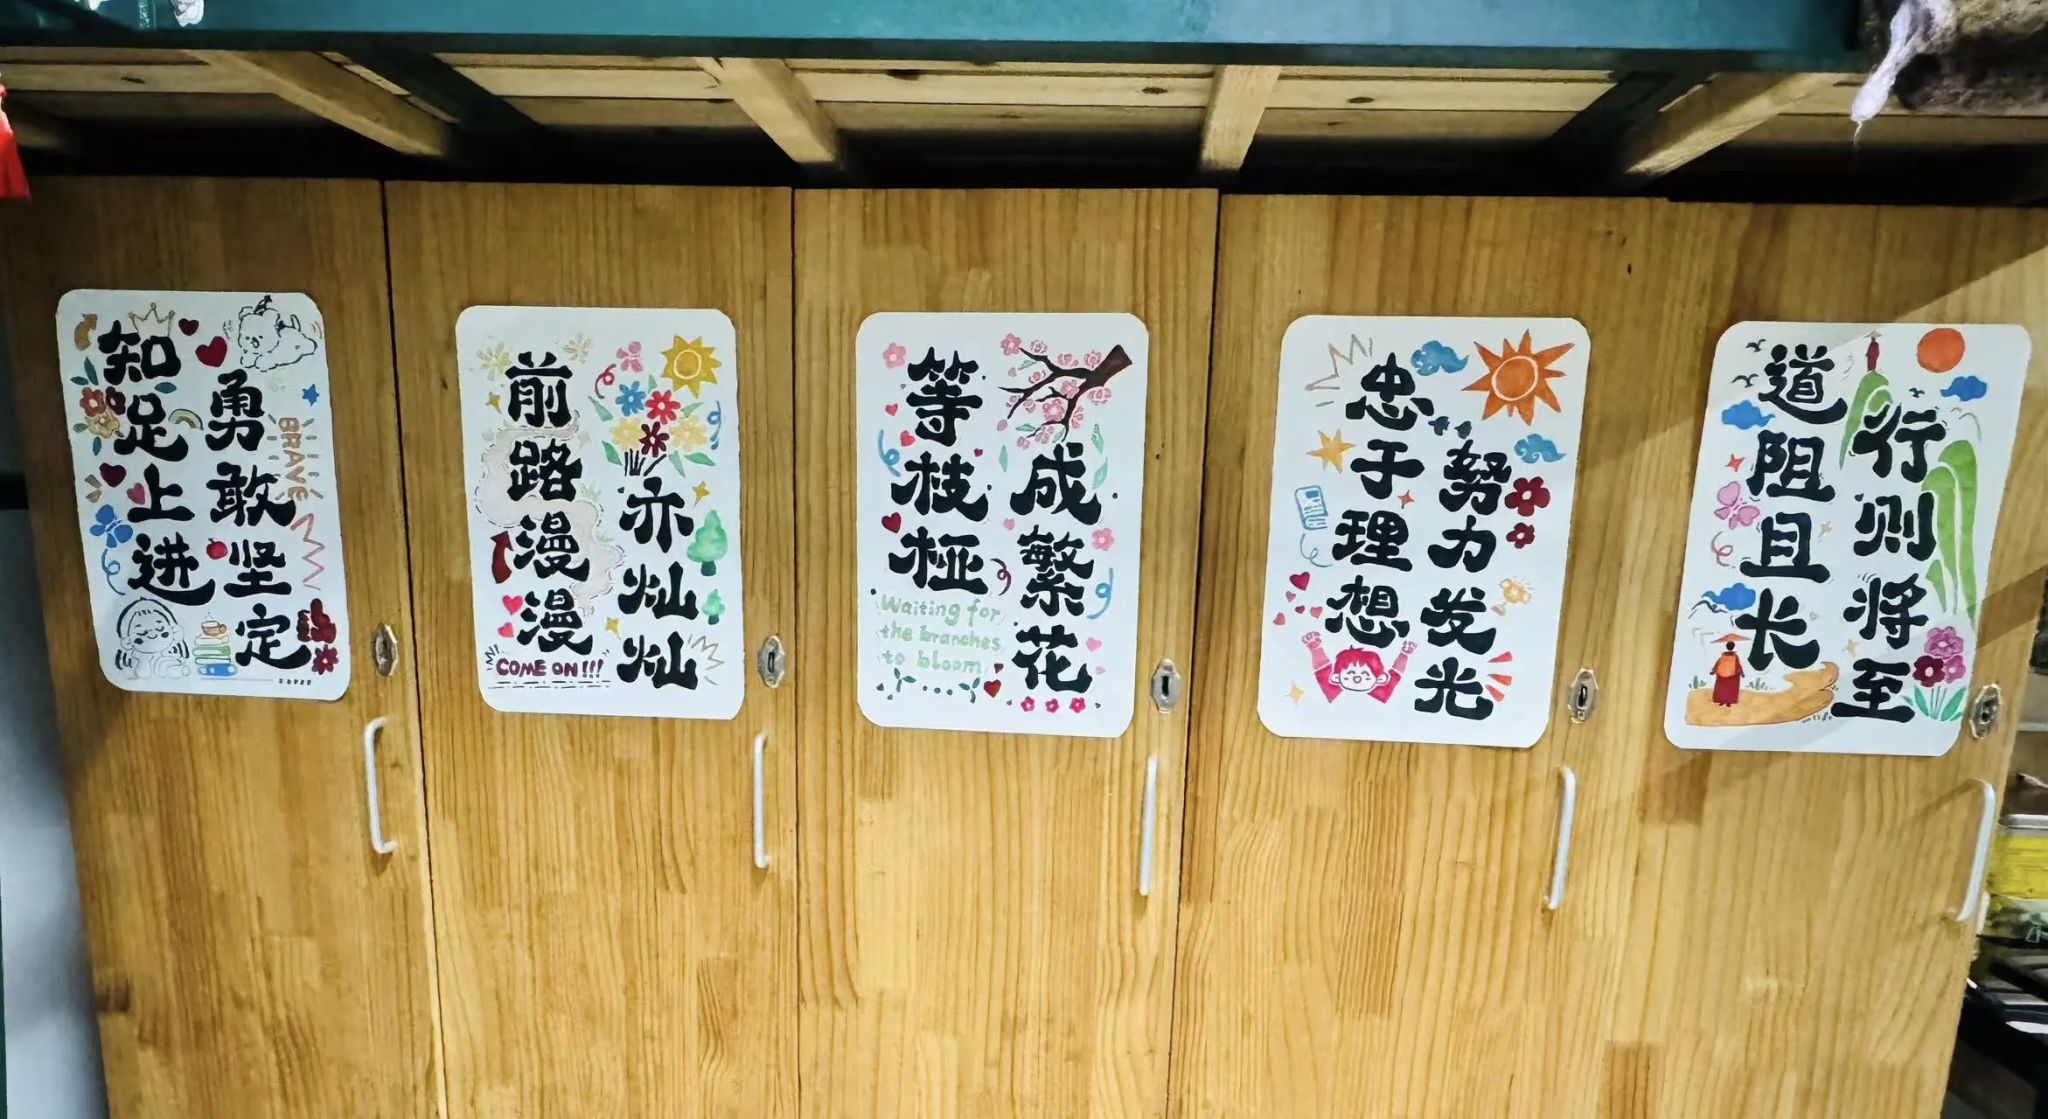 知足上进
勇敢坚定
BRAVE
前路漫漫
亦灿灿
COME ON!!!
等枝桠
成繁花
Waiting for
the branches
to bloom
忠于理想
努力发光
道阻且长
行则将至